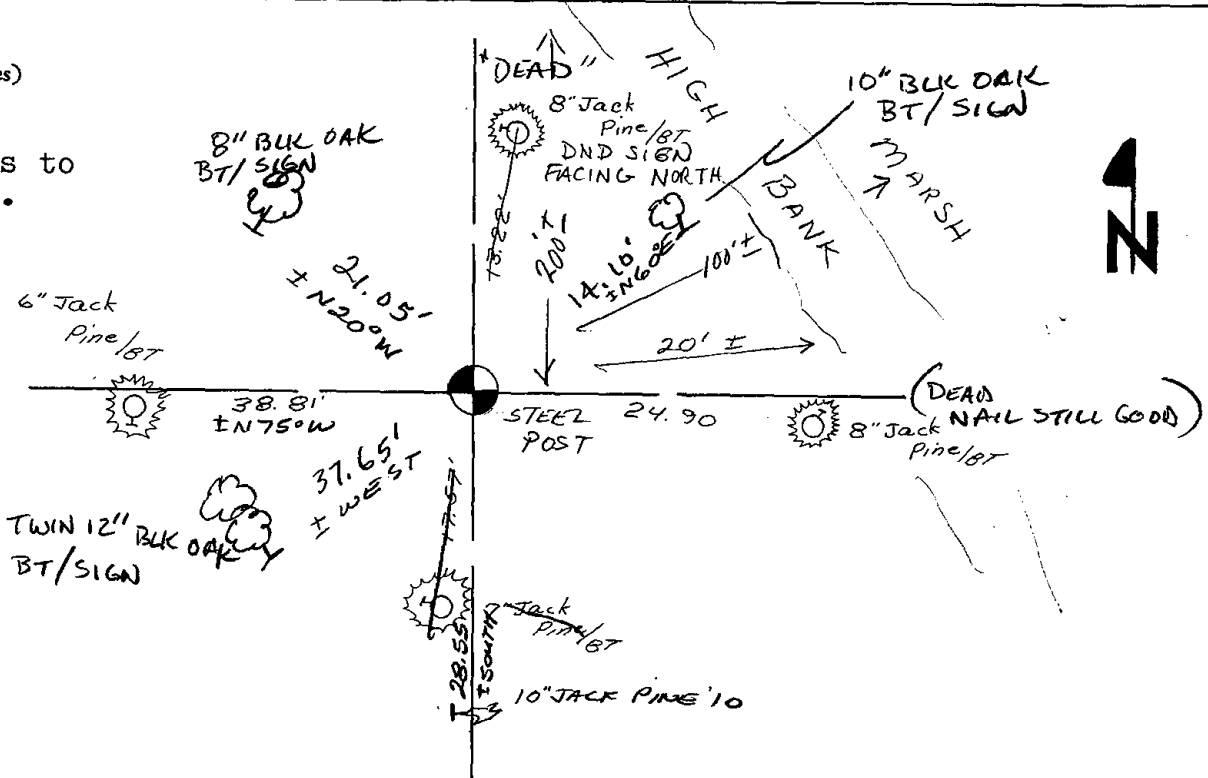 es)
s to
.
"DEAD"
8" Jack
Pine/BT
DND SIGN
FACING NORTH
HIGH
BANK
10" BLK OAK
BT/SIGN
MARSH
N
8" BLK OAK
BT/SIGN
21.05'
± N20°W
13.22'
200' ±
14.10'
± N60°E
100' ±
20' ±
6" Jack
Pine/BT
38.81'
± N75°W
STEEL
POST
24.90
8" Jack
Pine/BT
(DEAD
NAIL STILL GOOD)
37.65'
± WEST
TWIN 12" BLK OAK
BT/SIGN
Jack
Pine/BT
28.55
± SOUTH
10" JACK PINE '10